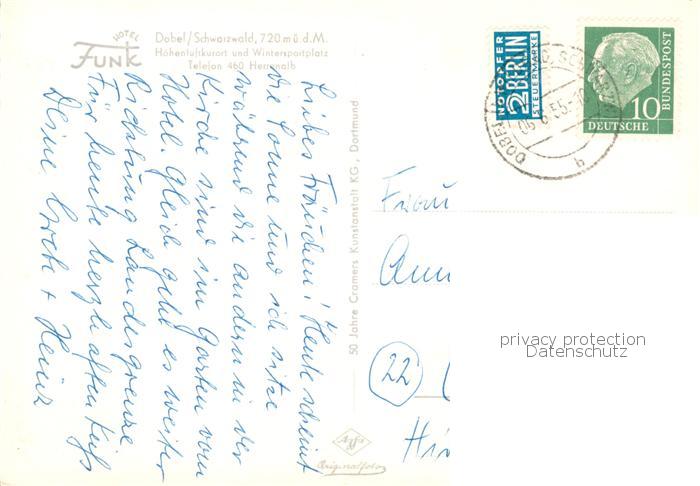 HOTEL
Funk
Dobel/Schwarzwald, 720 m ü. d. M.
Höhenluftkurort und Wintersportplatz
Telefon 460 Herrenalb
Liebes Frauchen! Heute scheint
die Sonne und ich sitze
während die andern in der
Kirche sind im Garten vom
Hotel. Gleich geht es weiter
Richtung Landesgrenze
Für heute herzhaften Kuß
Deine + Heinz
50 Jahre Cramers Kunstanstalt KG., Dortmund
NOTOPFER
2 BERLIN
STEUERMARKE
DOBEL
b
10
DEUTSCHE
BUNDESPOST
Frau
Ann
22
Hin
Agfa
Originalfoto
privacy protection
Datenschutz